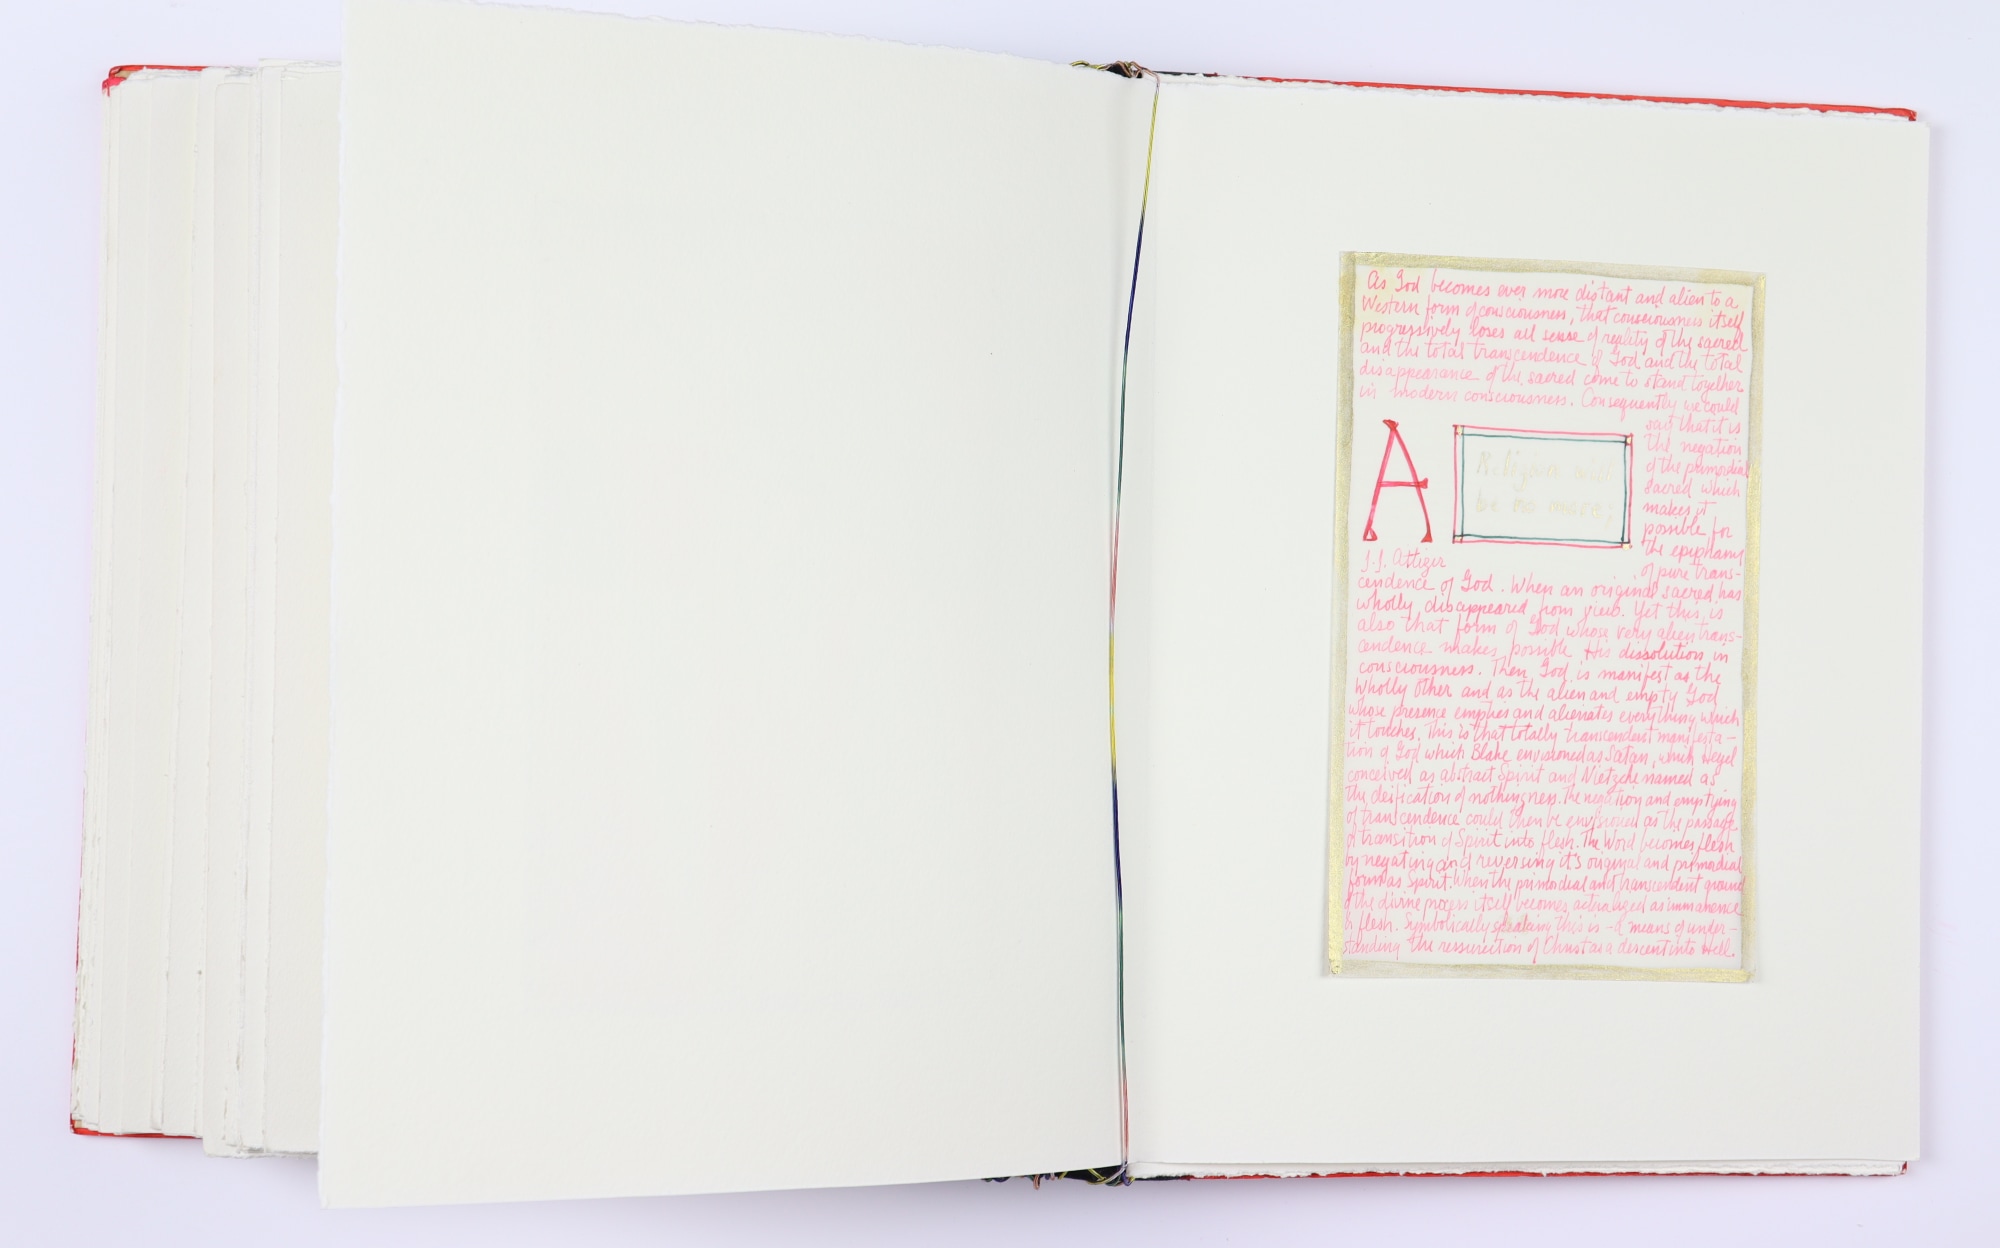 As God becomes ever more distant and alien to a
Western form of consciousness, that consciousness itself
progressively loses all sense of reality of the sacred
and the total transcendence of God and the total
disappearance of the sacred come to stand together
in modern consciousness. Consequently we could
say that it is
the negation
of the primordial
sacred which
makes it
possible for
the epiphany
of pure trans-
A
Religion will
be no more;
J.J. Attizer
cendence of God. When an original sacred has
wholly disappeared from view. Yet this is
also that form of God whose very alien trans-
cendence makes possible His dissolution in
consciousness. Then God is manifest as the
Wholly Other and as the alien and empty God
whose presence empties and alienates everything which
it touches. This is that totally transcendent manifesta-
tion of God which Blake envisioned as Satan, which Hegel
conceived as abstract Spirit and Nietzche named as
the deification of nothingness. The negation and emptying
of transcendence could then be envisioned as the passage
of transition of Spirit into flesh. The Word becomes flesh
by negating and reversing it's original and primordial
form as Spirit. When the primordial and transcendent ground
of the divine process itself becomes actualized as immanence
of flesh. Symbolically speaking this is - a means of under-
standing the ressurection of Christ as a descent into Hell.